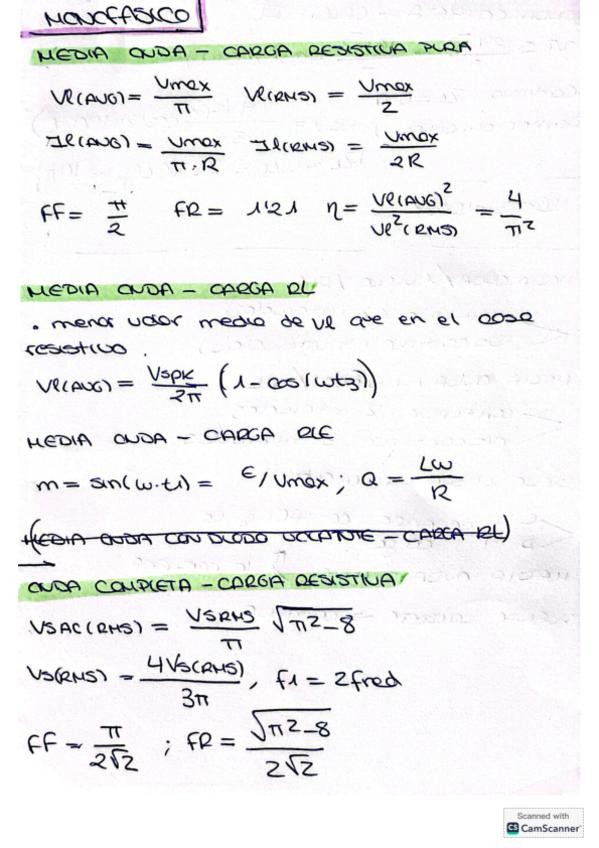 MONOFASICO
MEDIA ONDA - CARGA RESISTIVA PURA
Vl(AVG) = Vmax/π   Vl(RMS) = Vmax/2
Il(AVG) = Vmax/π·R   Il(RMS) = Vmax/2R
FF = π/2   FR = 1'21   η = Vl(AVG)²/Vl²(RMS) = 4/π²
MEDIA ONDA - CARGA RL
• menor valor medio de Vl que en el caso
resistivo.
Vl(AVG) = Vspk/2π (1 - cos(wt3))
MEDIA ONDA - CARGA RLE
m = sin(w·t1) = E/Vmax, Q = Lw/R
MEDIA ONDA CON DIODO VOLANTE - CARGA RL)
ONDA COMPLETA - CARGA RESISTIVA
VSAC(RMS) = VSRMS/π √π²-8
VS(RMS) = 4Vs(RMS)/3π, f1 = 2fred
FF = π/2√2 ; FR = √π²-8/2√2
Scanned with
CS CamScanner